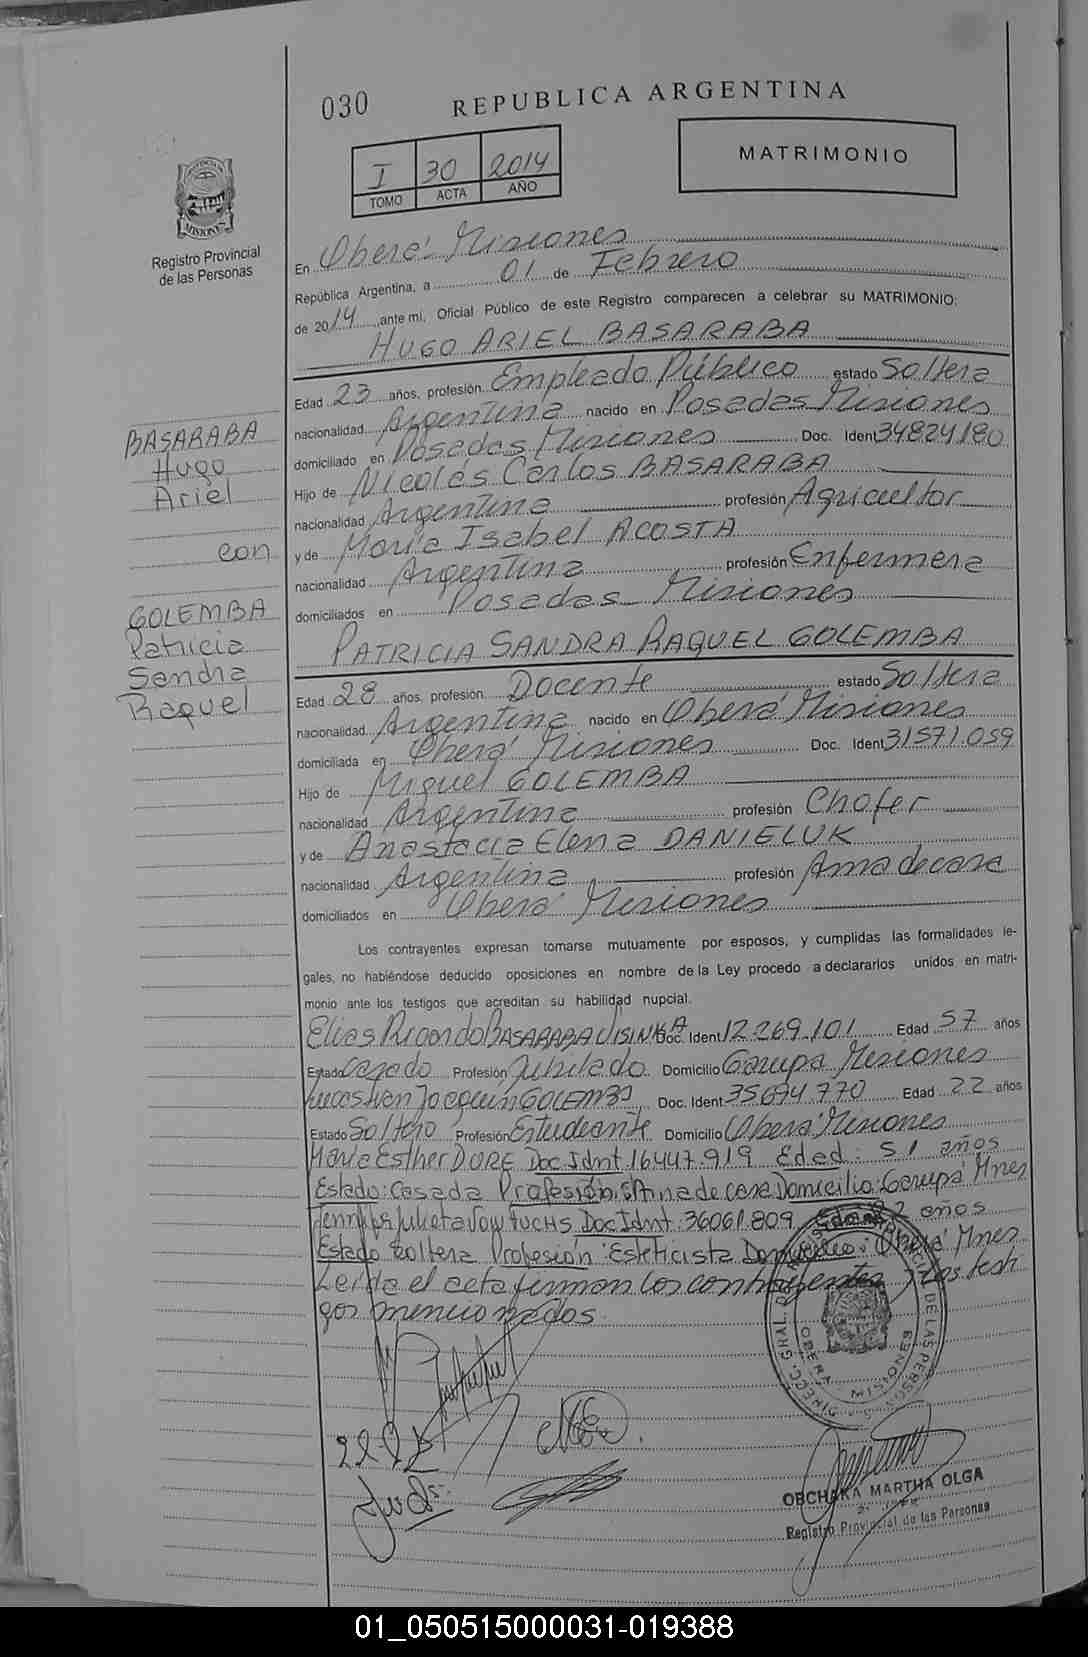 030 REPUBLICA ARGENTINA
I 30 2014
TOMO ACTA AÑO
MATRIMONIO
PROVINCIA DE MISIONES
Registro Provincial
de las Personas
En Oberá Misiones
República Argentina, a 01 de Febrero
de 2014, ante mi, Oficial Público de este Registro comparecen a celebrar su MATRIMONIO:
HUGO ARIEL BASARABA
Edad 23 años, profesión Empleado Público estado Soltero
nacionalidad Argentina nacido en Posadas Misiones
domiciliado en Posadas Misiones Doc. Ident 34824180
Hijo de Nicolás Carlos BASARABA
nacionalidad Argentina profesión Agricultor
y de María Isabel ACOSTA
nacionalidad Argentina profesión Enfermera
domiciliados en Posadas Misiones
PATRICIA SANDRA RAQUEL GOLEMBA
Edad 28 años, profesión Docente estado Soltera
nacionalidad Argentina nacido en Oberá Misiones
domiciliada en Oberá Misiones Doc. Ident 31571.059
Hijo de Miguel GOLEMBA
nacionalidad Argentina profesión Chofer
y de Anastacia Elena DANIELUK
nacionalidad Argentina profesión Ama de casa
domiciliados en Oberá Misiones
BASARABA
Hugo
Ariel
con
GOLEMBA
Patricia
Sandra
Raquel
Los contrayentes expresan tomarse mutuamente por esposos, y cumplidas las formalidades le-
gales, no habiéndose deducido oposiciones en nombre de la Ley procedo a declararlos unidos en matri-
monio ante los testigos que acreditan su habilidad nupcial.
Elias Ricardo BASARABA Doc. Ident 12.269.101 Edad 57 años
Estado Casado Profesión Jubilado Domicilio Garupa Misiones
Lucas Ivan Joaquín GOLEMBA Doc. Ident 35.694.770 Edad 22 años
Estado Soltero Profesión Estudiante Domicilio Oberá Misiones
María Esther DORE Doc Idnt 16447.919 Edad: 51 años
Estado: Casada Profesión: Ama de casa Domicilio: Garupá Mnes
Julieta FUCHS Doc Idnt: 36061.809 Edad: 22 años
Estado Soltera Profesión: Esteticista Domicilio: Oberá Mnes
Leída el acta firman los contrayentes y los testi
gos mencionados.
DIRECC. GRAL. DE LAS PERSONAS
OBERA - MISIONES
OBCHAKA MARTHA OLGA
Registro Provincial de las Personas
01_050515000031-019388